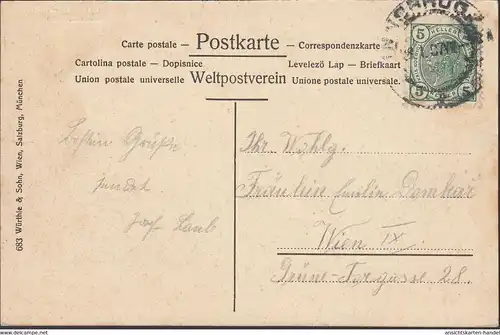 Carte postale – Postkarte – Correspondenzkarte
Cartolina postale – Dopisnice Levelezö Lap – Briefkaart
Union postale universelle Weltpostverein Unione postale universale.
5 HELLER 5
Besten Grüße
sendet
Josef
Ihr Wohlg.
Fräulein Emilie
Wien IX.
Grüne-Torgasse 28.
683 Würthle & Sohn, Wien, Salzburg, München
ansichtskarten-handel